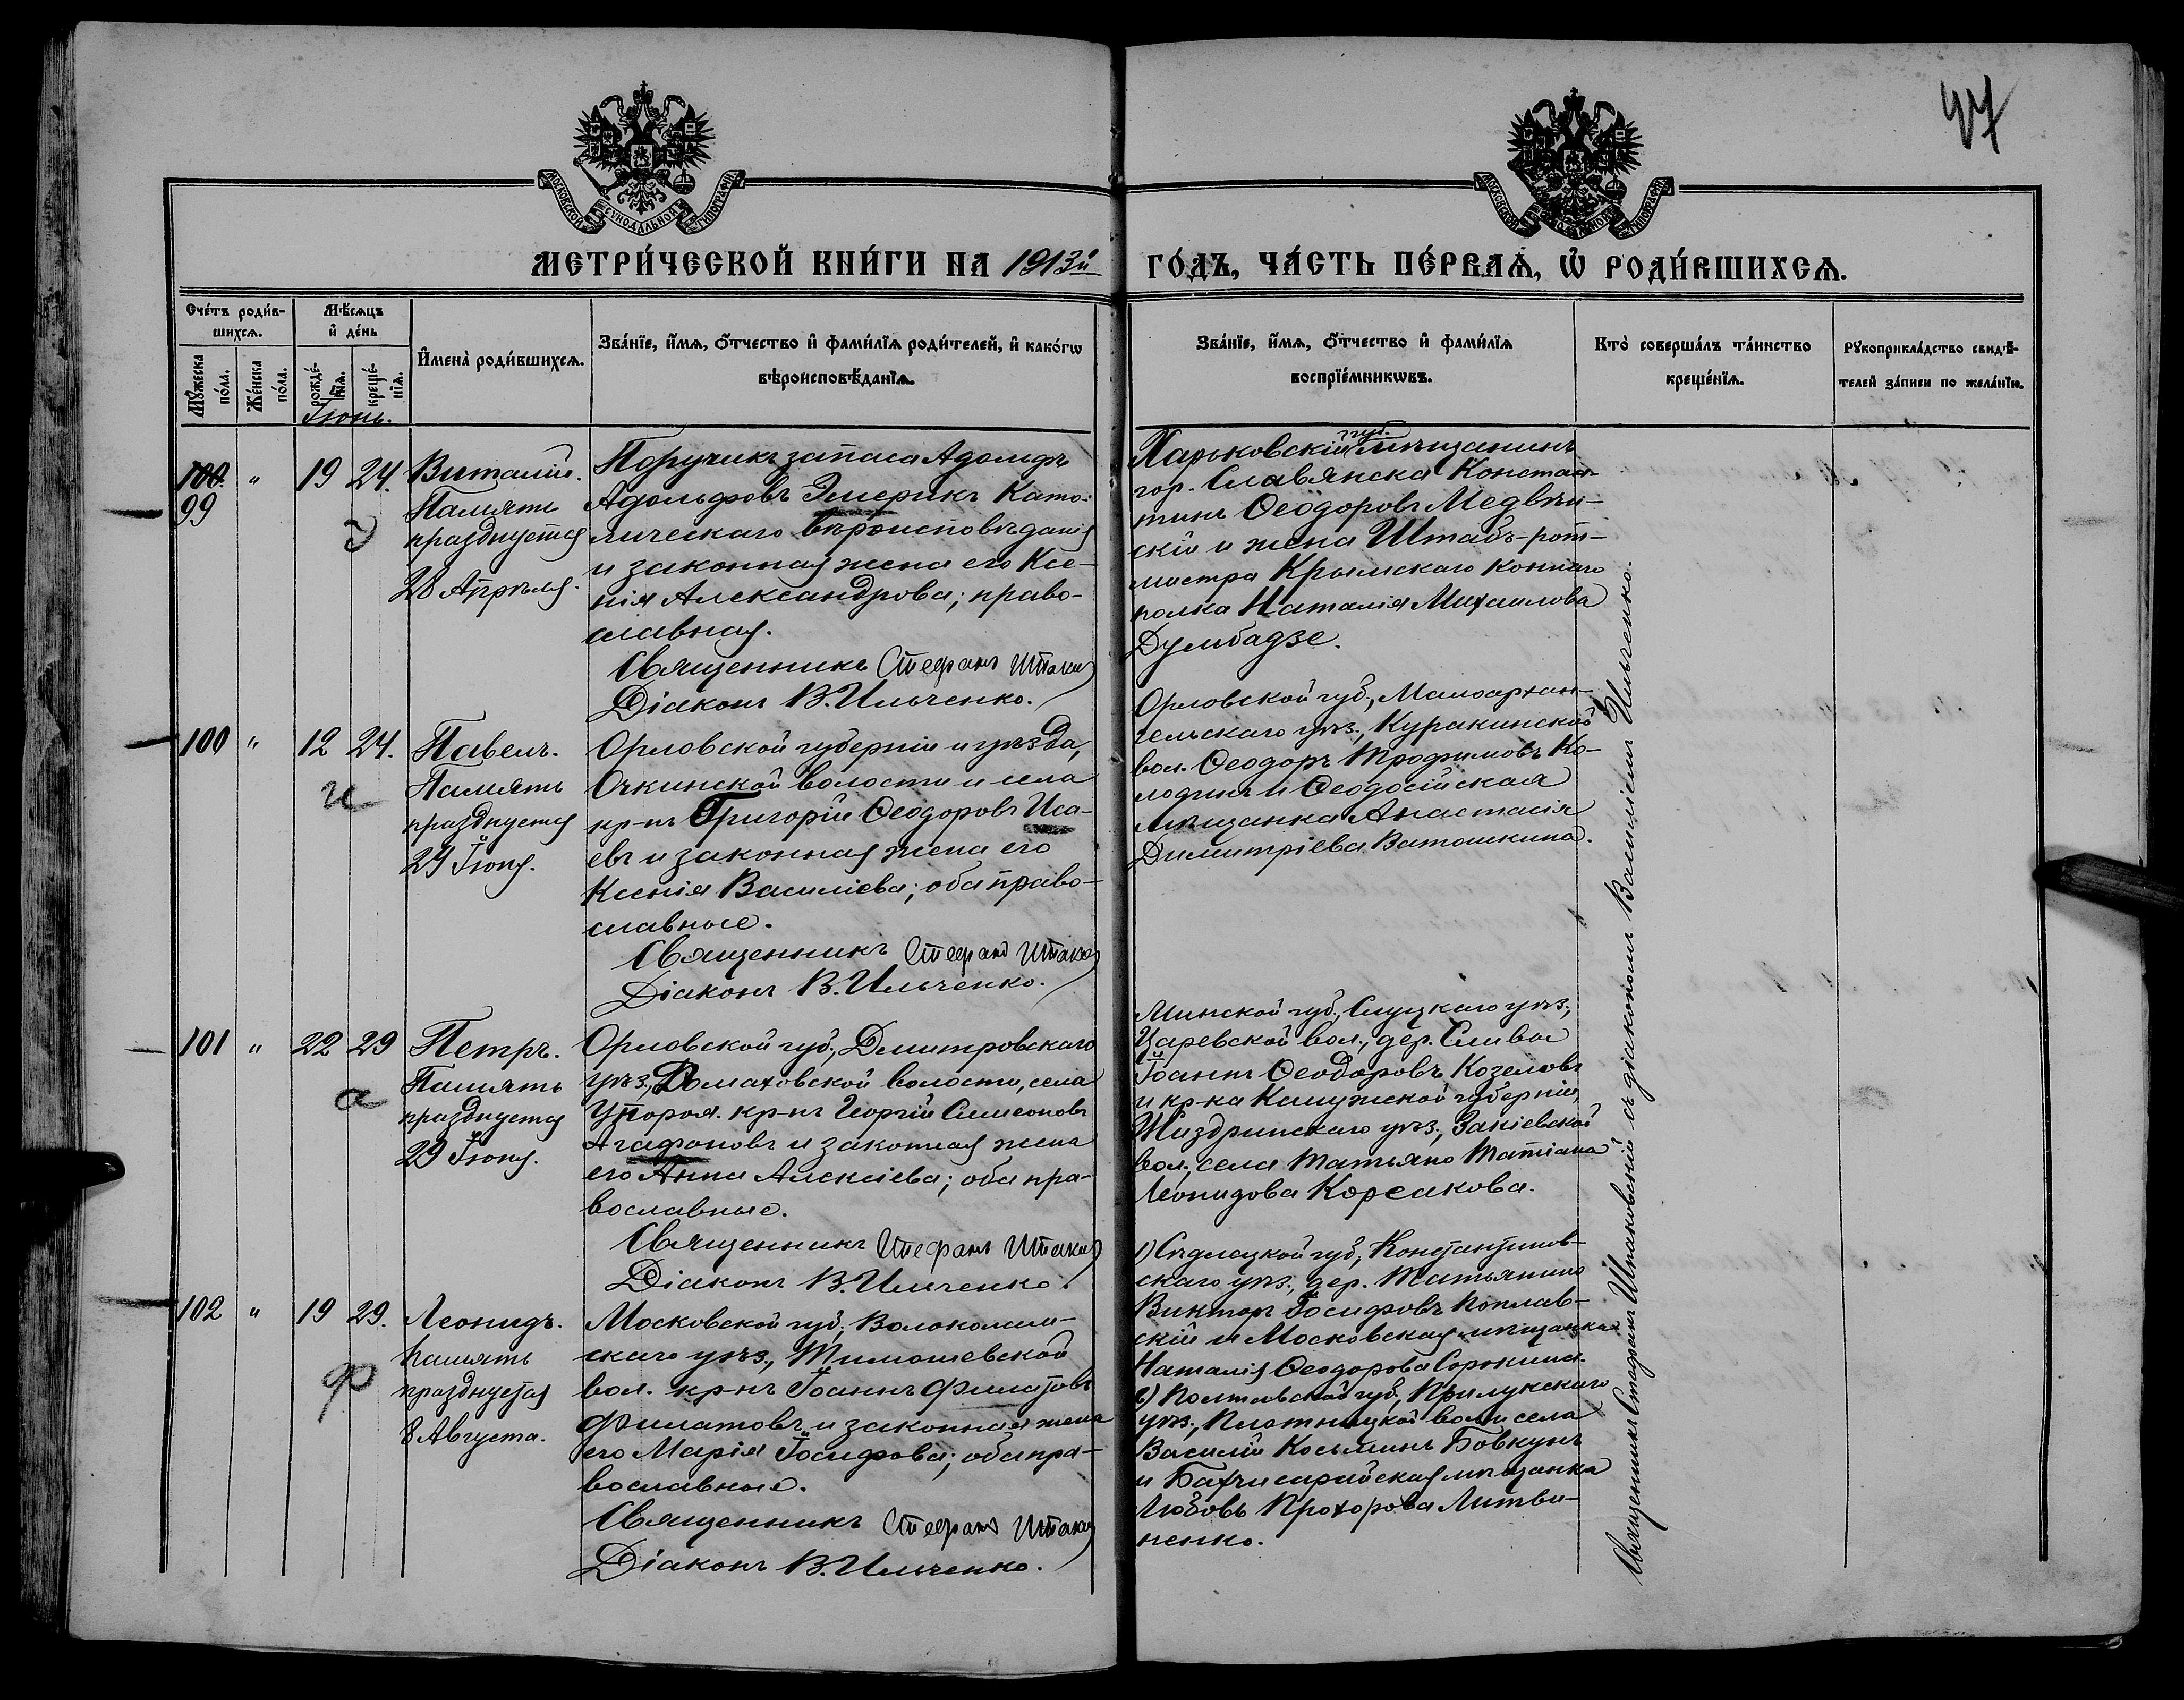 47
МОСКОВСКОЙ СѴНОДАЛЬНОЙ ТИПОГРАФІИ
МОСКОВСКОЙ СѴНОДАЛЬНОЙ ТИПОГРАФІИ
МЕТРИ́ЧЕСКОЙ КНИ́ГИ НА 1913й ГО́ДЪ, ЧА́СТЬ ПЕ́РВАѦ, Ѡ҆ РОДИ́ВШИХСѦ.
Сче́тъ роди́в-
шихсѧ.
Мꙋ́жеска
по́ла.
Же́нска
по́ла.
Мѣ́сѧцъ
и҆ де́нь
рожде́-
нїѧ.
креще́-
нїѧ.
И҆мена̀ роди́вшихсѧ.
Зва́нїе, и҆́мѧ, ѻ҆́тчество и҆ фами́лїѧ роди́телей, и҆ како́гѡ
вѣроисповѣ́данїѧ.
Зва́нїе, и҆́мѧ, ѻ҆́тчество и҆ фами́лїѧ
воспрїе́мникѡвъ.
Кто̀ соверша́лъ та́инство
креще́нїѧ.
Рꙋкоприкла́дство свидѣ́-
телей за́писи по жела́нїю.
Іюнь.
100.
99
"
19
24.
Э
Виталій.
Память
празднуется
28 Апрѣля.
Поручикъ запаса Адольфъ
Адольфовъ Эмерикъ Като-
лическаго вѣроисповѣданія
и законная жена его Ксе-
нія Александрова; право-
славная.
Священникъ Стефанъ Штак
Діаконъ В. Ильченко.
Харьковскій губ. мѣщанинъ
гор. Славянска Констан-
тинъ Ѳеодоровъ Медвѣн-
скій и жена Штабъ-рот-
мистра Крымскаго Коннаго
полка Наталія Михаилова
Думбадзе.
100
"
12
24.
И
Павелъ.
Память
празднуется
29 Іюня.
Орловской губерніи и уѣзда,
Очкинской волости и села
кр-нъ Григорій Ѳеодоровъ Иса-
евъ и законная жена его
Ксенія Василіева; оба право-
славные.
Священникъ Стефанъ Штак
Діаконъ В. Ильченко.
Орловской губ., Малоархан-
гельскаго уѣз., Куракинской
вол. Ѳеодоръ Трофимовъ Ко-
лодинъ и Ѳеодосійская
мѣщанка Анастасія
Димитріева Ватошкина.
101
"
22
29
а
Петръ.
Память
празднуется
29 Іюня.
Орловской губ., Дмитровскаго
уѣз., Домаховской волости, села
Упороя. кр-нъ Георгій Симеоновъ
Агафоновъ и законная жена
его Анна Алексіева; оба пра-
вославные.
Священникъ Стефанъ Штак
Діаконъ В. Ильченко.
Минской губ., Слуцкаго уѣз.,
Царевской вол., дер. Сливы
Іоаннъ Ѳеодоровъ Козеловъ
и кр-ка Калужской губерніи,
Жиздринскаго уѣз., Закіевской
вол., села Матьяно Татіана
Леонидова Корсакова.
102
"
19
29.
ф
Леонидъ.
Память
празднуется
8 Августа.
Московской губ., Волоколам-
скаго уѣз., Тимошевской
вол. кр-нъ Іоаннъ Филатовъ
Филатовъ и законная жена
его Марія Іосифова; оба пра-
вославные.
Священникъ Стефанъ Штак
Діаконъ В. Ильченко.
1) Сѣдлецкой губ., Константинов-
скаго уѣз., дер. Матьянино
Викторъ Іосифовъ Поплав-
скій и Московская мѣщанка
Наталія Ѳеодорова Сорокина.
2) Полтавской губ., Прилукскаго
уѣз., Плотницкой вол. и села
Василій Косьминъ Бовкунъ
и Бахчисарайская мѣщанка
Любовь Прохорова Литви-
ненко.
Священникъ Стефанъ Штаковскій съ діакономъ Василіемъ Ильченко.